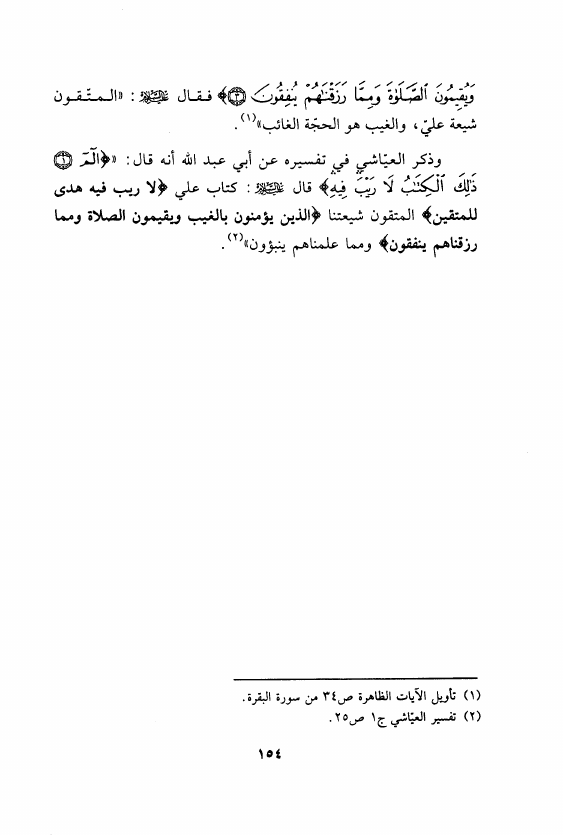 وَيُقِيمُونَ ٱلصَّلَوٰةَ وَمِمَّا رَزَقْنَـٰهُمْ يُنفِقُونَ ﴿٣﴾﴾ فـقـال عليه السلام : «الـمـتّـقـون
شيعة عليّ، والغيب هو الحجّة الغائب»(١).
وذكر العيّاشي في تفسيره عن أبي عبد الله أنه قال: «﴿الٓمٓ ﴿١﴾
ذَٰلِكَ ٱلْكِتَـٰبُ لَا رَيْبَ ۛ فِيهِ ۛ﴾ قال عليه السلام : كتاب علي ﴿لا ريب فيه هدى
للمتقين﴾ المتقون شيعتنا ﴿الذين يؤمنون بالغيب ويقيمون الصلاة ومما
رزقناهم ينفقون﴾ ومما علمناهم ينبؤون»(٢).
(١) تأويل الآيات الظاهرة ص٣٤ من سورة البقرة.
(٢) تفسير العيّاشي ج١ ص٢٥.
١٥٤